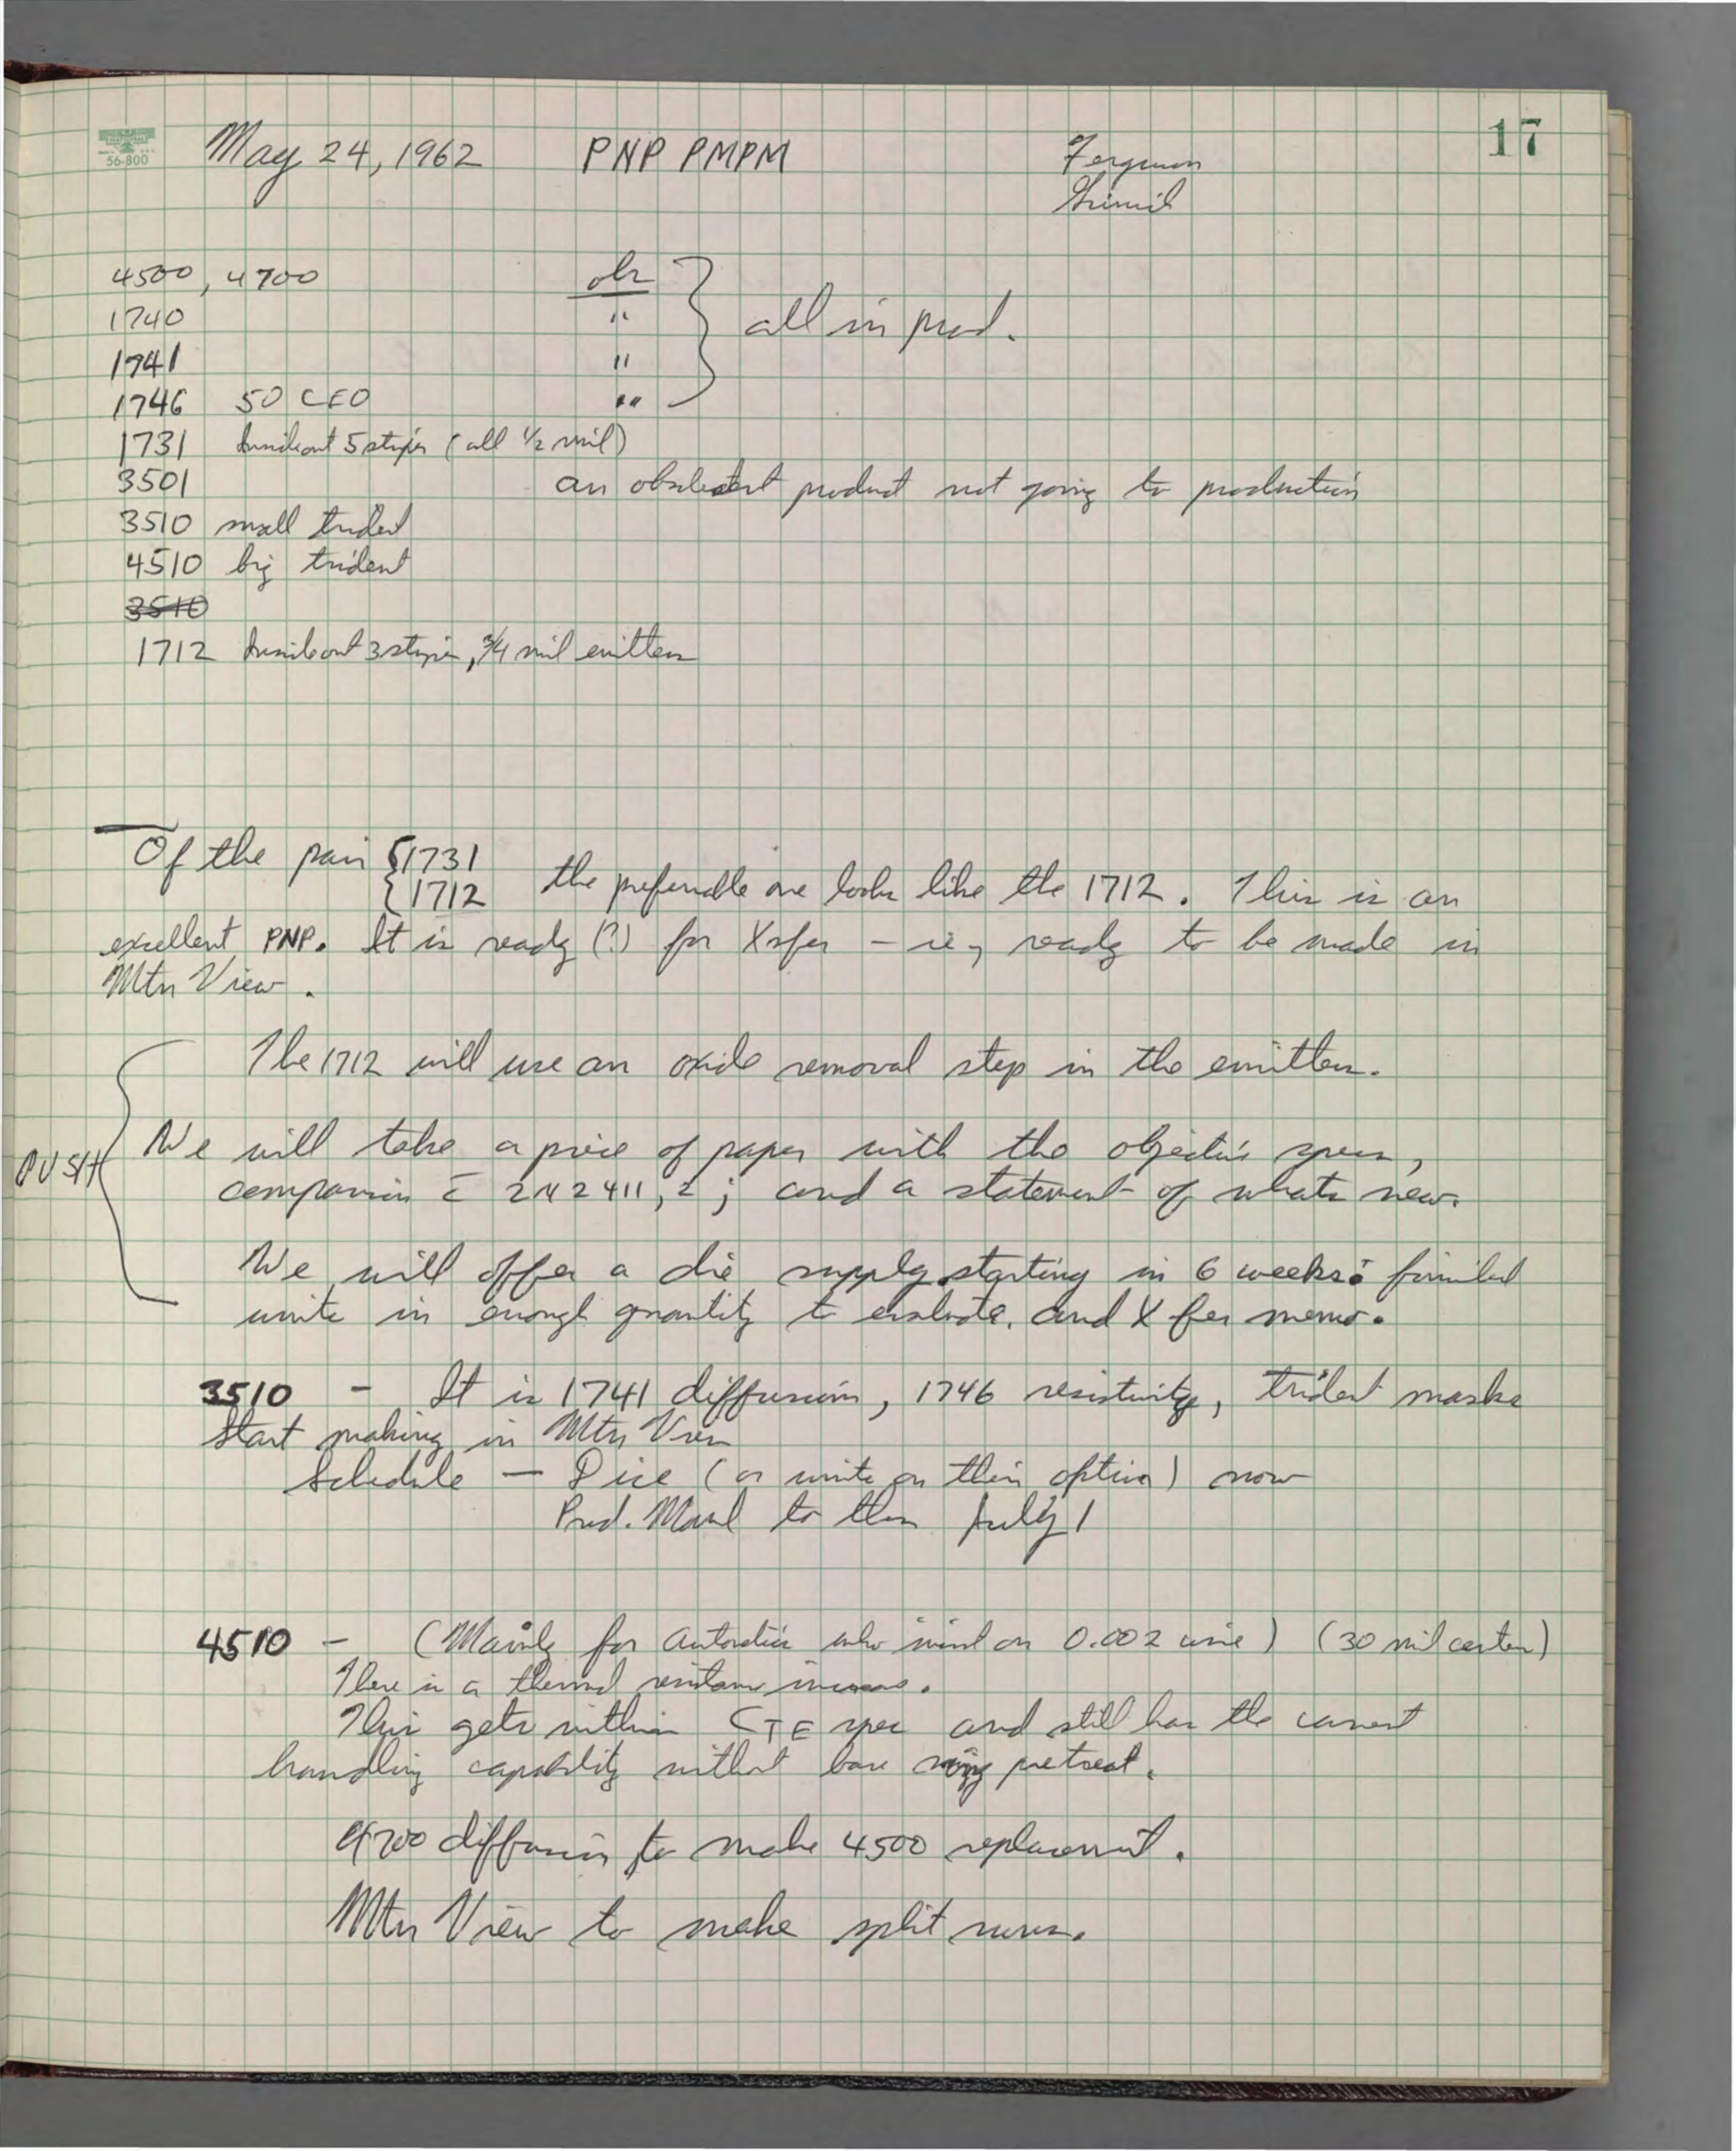 17
56-800
May 24, 1962 PNP PMPM Ferguson
4500, 4700 ok
1740 " all in prod.
1741 "
1746 50 CEO "
1731 inside out 5 stripe (all 1/2 mil)
3501 an obsolescent product not going to production
3510 small trident
4510 big trident
3510
1712 inside out 3 stripe, 3/4 mil emitters
Of the pair {1731
{1712 the preferable one looks like the 1712. This is an
excellent PNP. It is ready (?) for Xsfer – ie, ready to be made in
Mtn View.
The 1712 will use an oxide removal step in the emitter.
PUSH
We will take a piece of paper with the objective specs,
comparison c̄ 2N2411, 2; and a statement of whats new.
We will offer a die supply starting in 6 weeks: finished
units in enough quantity to evaluate. and Xfer memo.
3510 – It is 1741 diffusion, 1746 resistivity, trident masks
Start making in Mtn View
Schedule – Dice (or units on their option) now
Prod. to them July 1
4510 – (Mainly for Autonetics who insist on 0.002 wire) (30 mil centers)
There is a thermal resistance increase.
This gets within CTE spec and still has the current
handling capability without base pretreat.
4700 diffusion to make 4500 replacement.
Mtn View to make split runs.